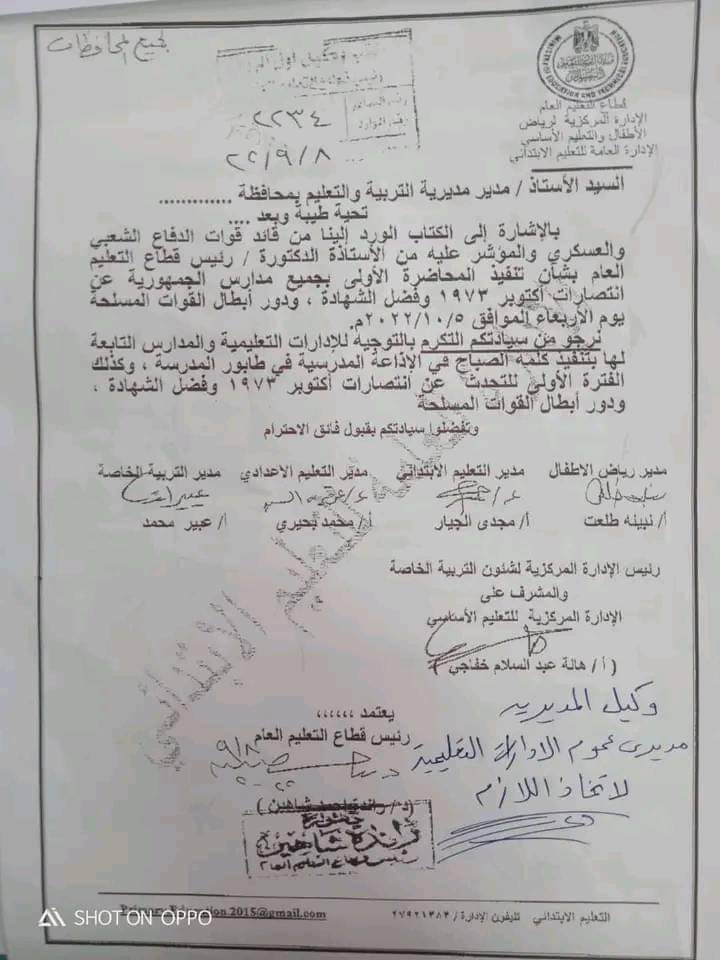 لجميع المحافظات
MINISTRY OF EDUCATION AND TECHNICAL
٢٢٣٤
٢٢/٩/٨
قطاع التعليم العام
الإدارة المركزية لرياض
الأطفال والتعليم الأساسي
الإدارة العامة للتعليم الابتدائي
السيد الأستاذ / مدير مديرية التربية والتعليم بمحافظة .............
تحية طيبة وبعد ....
بالإشارة إلى الكتاب الورد إلينا من قائد قوات الدفاع الشعبي
والعسكري والمؤشر عليه من الأستاذة الدكتورة / رئيس قطاع التعليم
العام بشأن تنفيذ المحاضرة الأولى بجميع مدارس الجمهورية عن
انتصارات أكتوبر ١٩٧٣ وفضل الشهادة ، ودور أبطال القوات المسلحة
يوم الأربعاء الموافق ٢٠٢٢/١٠/٥م.
نرجو من سيادتكم التكرم بالتوجيه للإدارات التعليمية والمدارس التابعة
لها بتنفيذ كلمة الصباح في الإذاعة المدرسية في طابور المدرسة ، وكذلك
الفترة الأولى للتحدث عن انتصارات أكتوبر ١٩٧٣ وفضل الشهادة ،
ودور أبطال القوات المسلحة
وتفضلوا سيادتكم بقبول فائق الاحترام
مدير رياض الاطفال مدير التعليم الابتدائي مدير التعليم الاعدادي مدير التربية الخاصة
أ/ نبينه طلعت أ/ مجدى الجيار أ/ محمد بحيري أ/ عبير محمد
رئيس الإدارة المركزية لشئون التربية الخاصة
والمشرف على
الإدارة المركزية للتعليم الأساسي
( أ / هالة عبد السلام خفاجي )
يعتمد ،،،،،،
رئيس قطاع التعليم العام
٩/٨
(د/ راندة احمد شاهين)
راندة شاهين
رئيس قطاع التعليم العام
وكيل المديرية
مديرى عموم الادارات التعليمية
لاتخاذ اللازم
التعليم الابتدائي
التعليم الابتدائي تليفون الإدارة / ٢٧٩٢١٣٨٣ Primary.Education.2015@gmail.com
SHOT ON OPPO